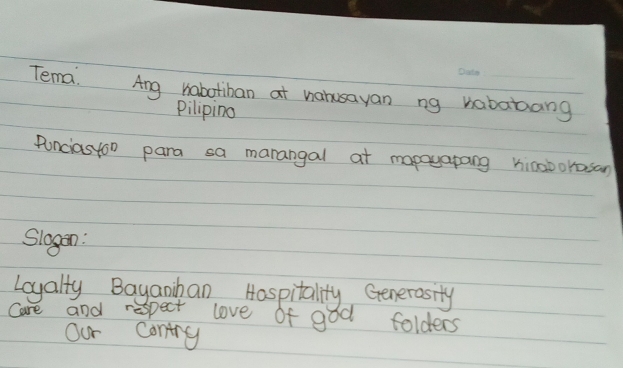 Date
Tema: Ang kabotihan at kahusayan ng kabataang
Pilipino
Punciasyon para sa marangal at mapayapang kinabohasan
Slogan:
Loyalty Bayanihan Hospitality Generosity
Care and respect love of god folders
Our Contry